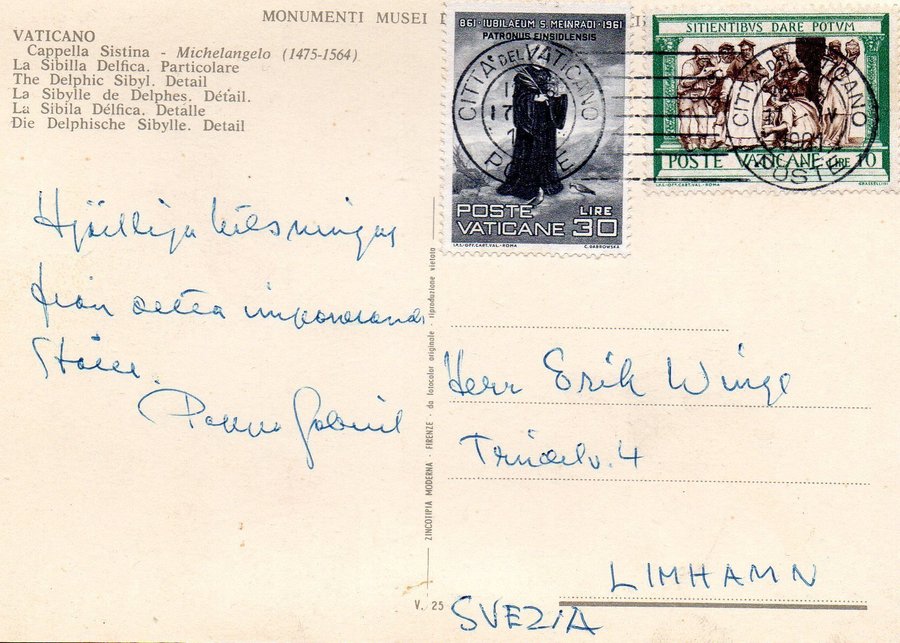 MONUMENTI MUSEI
VATICANO
Cappella Sistina - Michelangelo (1475-1564)
La Sibilla Delfica. Particolare
The Delphic Sibyl. Detail
La Sibylle de Delphes. Détail.
La Sibila Délfica. Detalle
Die Delphische Sibylle. Detail
861 - IUBILAEUM S. MEINRADI - 1961
PATRONUS EINSIDLENSIS
POSTE LIRE
VATICANE 30
I.P.S.-OFF.CART.VAL.-ROMA C. DABROWSKA
SITIENTIBVS DARE POTVM
POSTE VATICANE LIRE 10
I.P.S.-OFF.CART.VAL.-ROMA GRASSELLINI
CITTÀ DEL VATICANO
POSTE
CITTÀ DEL VATICANO
1961
POSTE
Hjärtliga hälsningar
från detta imponerande
Ställe.
Gabriel
ZINCOTIPIA MODERNA - FIRENZE - da fotocolor originale - riproduzione vietata
Herr Erik Winge
4
LIMHAMN
V. 25
SVEZIA